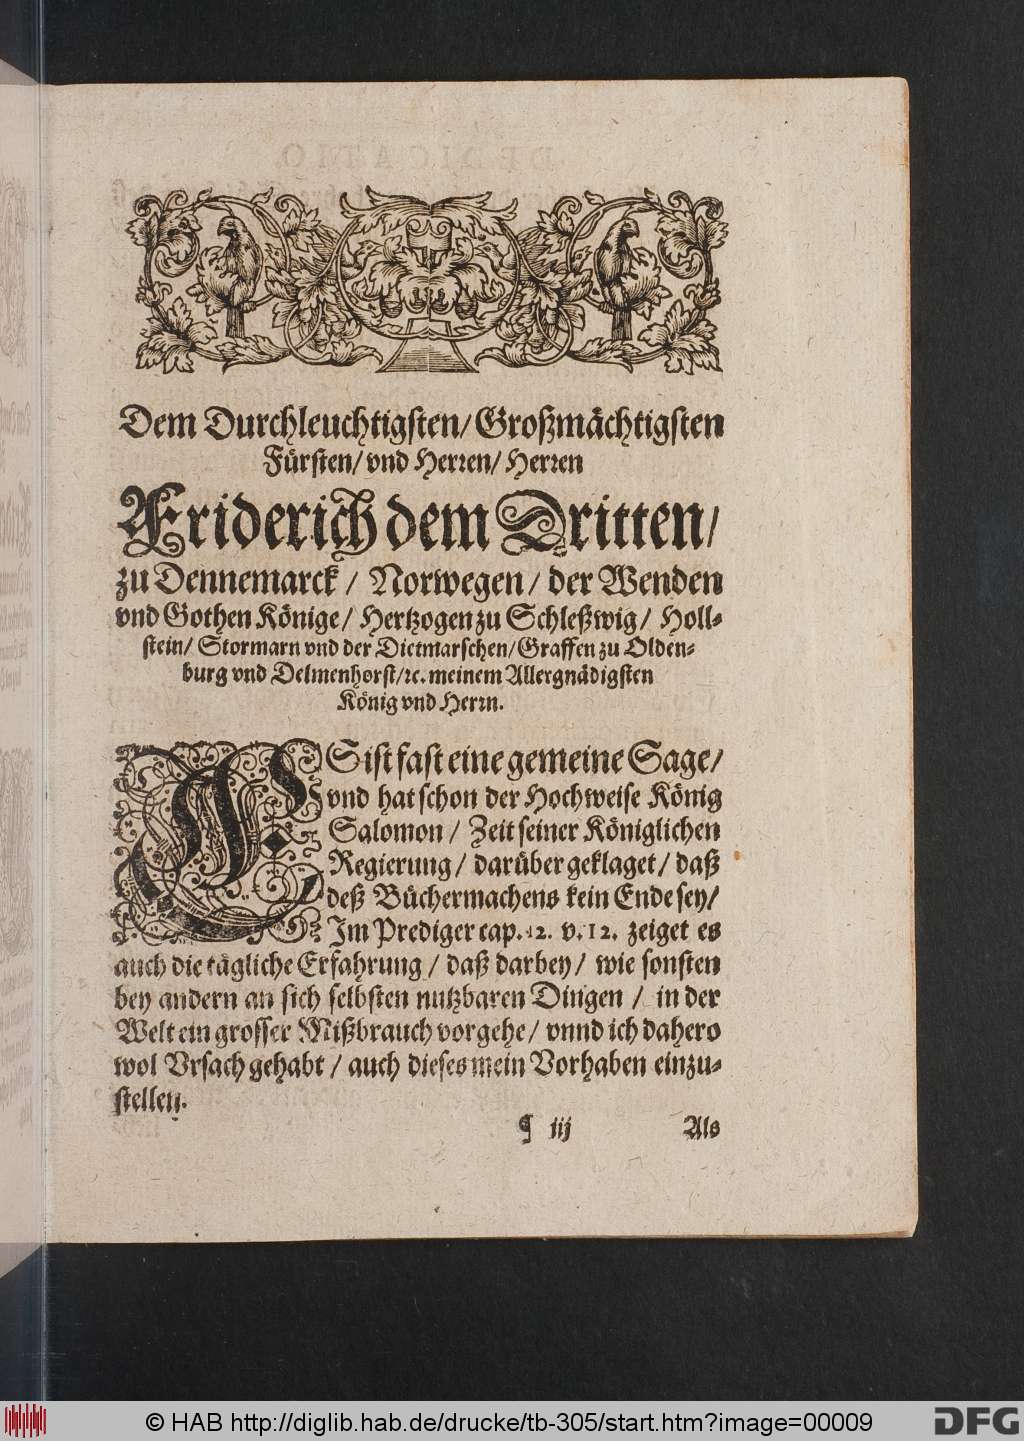 Dem Durchleuchtigsten/ Großmächtigsten
Fürsten/ vnd Herren/ Herren
Friderich dem Dritten/
zu Dennemarck/ Norwegen/ der Wenden
vnd Gothen Könige/ Hertzogen zu Schleßwig/ Holl-
stein/ Stormarn vnd der Dietmarschen/ Graffen zu Olden-
burg vnd Delmenhorst/ ꝛc. meinem Allergnädigsten
König vnd Herrn.
ES ist fast eine gemeine Sage/
vnd hat schon der Hochweise König
Salomon/ Zeit seiner Königlichen
Regierung/ darüber geklaget/ daß
deß Büchermachens kein Ende sey/
Im Prediger cap. 12. v. 12. zeiget es
auch die tägliche Erfahrung/ daß darbey/ wie sonsten
bey andern an sich selbsten nutzbaren Dingen/ in der
Welt ein grosser Mißbrauch vorgehe/ vnnd ich dahero
wol Vrsach gehabt/ auch dieses mein Vorhaben einzu-
stellen.
¶ iij Als
© HAB http://diglib.hab.de/drucke/tb-305/start.htm?image=00009
DFG